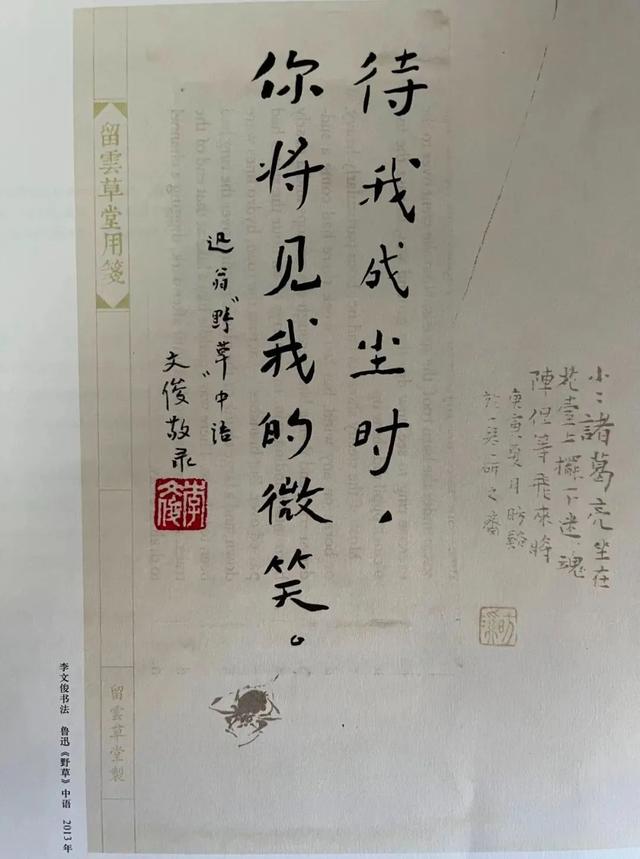 小〻諸葛亮坐在
花臺上擺下迷魂
陣但等飛來將
庚寅夏月昉谿
待我成尘时，
你将见我的微笑。
迅翁“野草”中语
文俊敬录
李文俊
留雲草堂用箋
留雲草堂製
李文俊书法 鲁迅《野草》中语 2013年